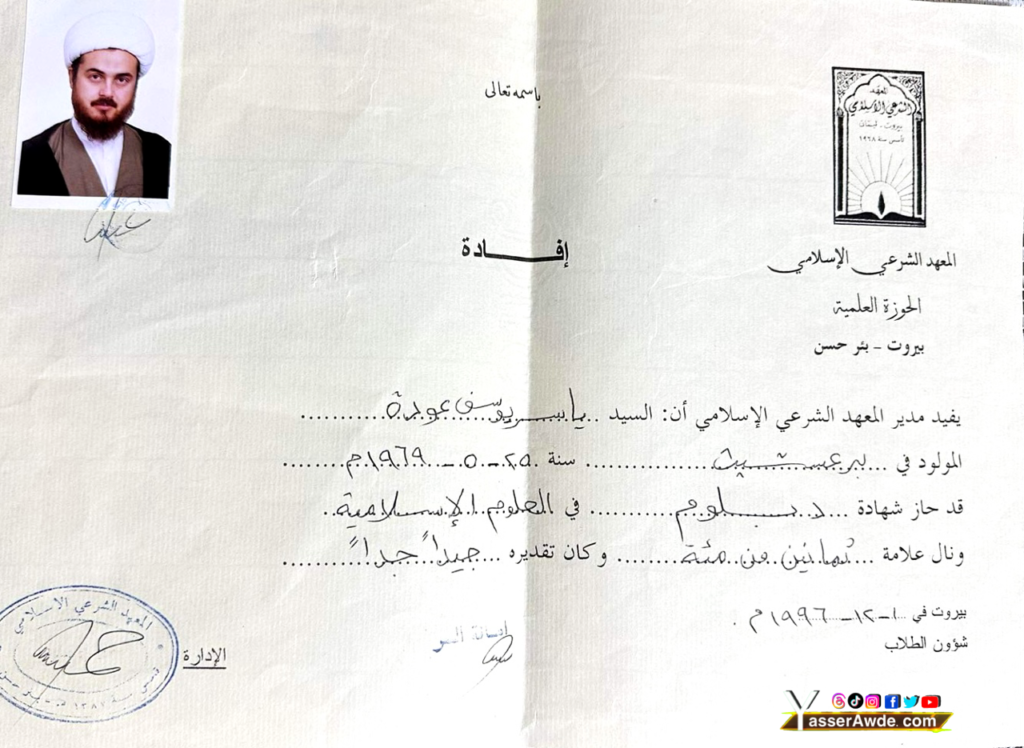 باسمه تعالى
المعهد
الشرعي الإسلامي
بيروت - لبنان
تأسس سنة ١٩٦٨
المعهد الشرعي الإسلامي
الحوزة العلمية
بيروت - بئر حسن
إفــادة
يفيد مدير المعهد الشرعي الإسلامي أن: السيد ...ياسر يوسف عودة...
المولود في ...برعشيت... سنة ٢٥-٥-١٩٦٩م...
قد حاز شهادة ...دبلوم... في العلوم الإسلامية..
ونال علامة ...ثمانين من مئة... وكان تقديره ...جيداً جداً...
بيروت في ١-١٢-١٩٩٦م.
شؤون الطلاب
أمانة السر
الإدارة
المعهد الشرعي الإسلامي
YasserAwde.com